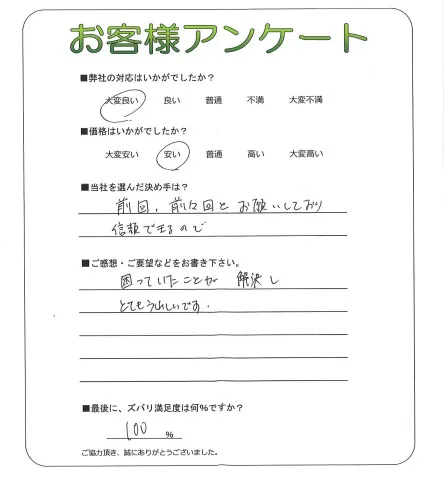 お客様アンケート
■弊社の対応はいかがでしたか？
大変良い 良い 普通 不満 大変不満
■価格はいかがでしたか？
大変安い 安い 普通 高い 大変高い
■当社を選んだ決め手は？
前回、前々回とお願いしており
信頼できるので
■ご感想・ご要望などをお書き下さい。
困っていたことが 解決し
とてもうれしいです。
■最後に、ズバリ満足度は何％ですか？
100 %
ご協力頂き、誠にありがとうございました。